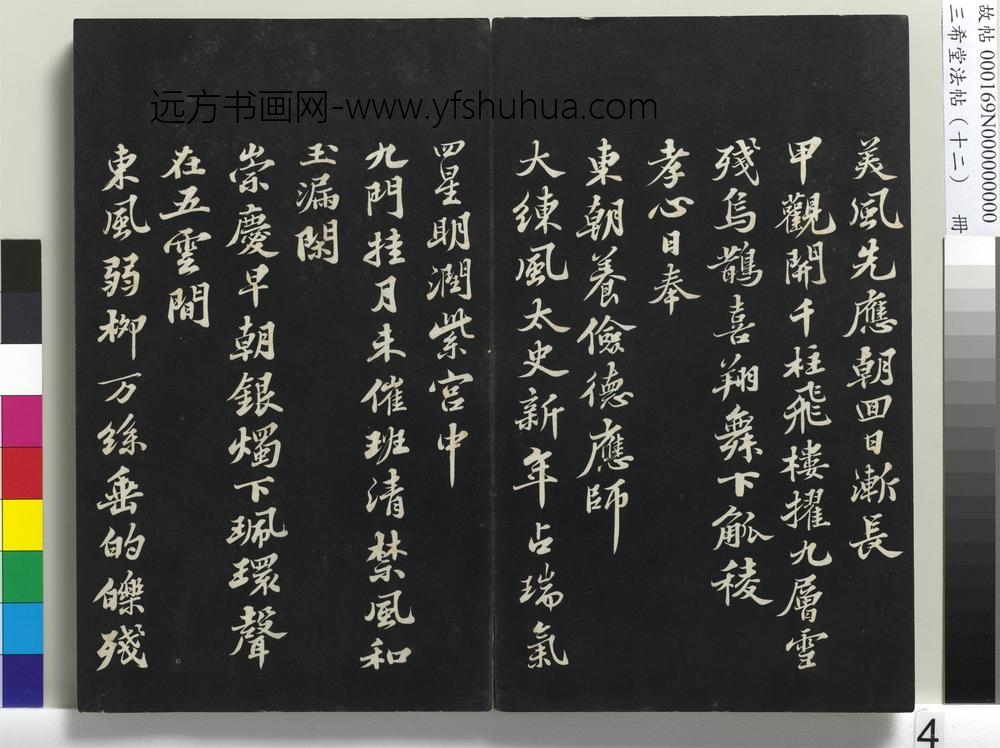 美風先應朝回日漸長
甲觀開千柱飛樓擢九層雪
殘烏鵲喜翔舞下觚稜
孝心日奉
東朝養儉德應師
大練風太史新年占瑞氣
四星明潤紫宮中
九門挂月未催班清禁風和
玉漏閑
崇慶早朝銀燭下珮環聲
在五雲間
東風弱柳万絲垂的皪殘
远方书画网-www.yfshuhua.com
故帖 000169N000000000
三希堂法帖(十二) 冊
4